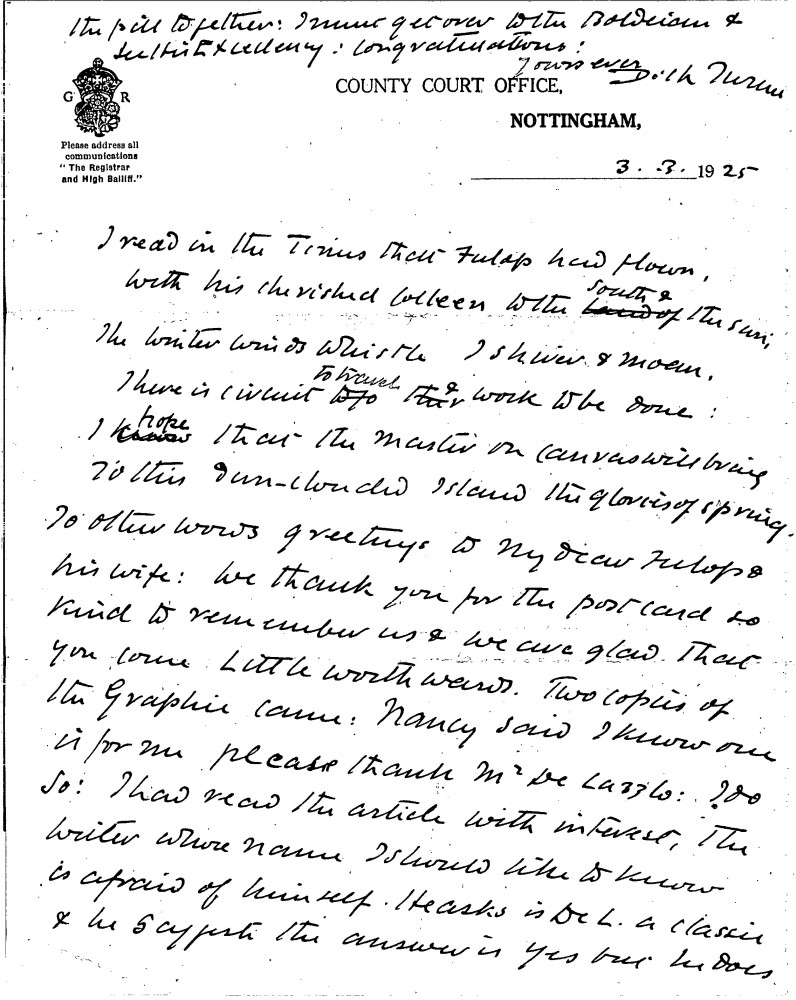 the pill together: I must get over to the Boldeism &
see His Excellency: Congratulations:
Yours ever Dick Turner
COUNTY COURT OFFICE,
NOTTINGHAM,
G R
Please address all
communications
"The Registrar
and High Bailiff."
3. 3. 1925
I read in the Times that Fulop had flown,
with his cherished Colleen to the Land of south & the sun,
The winter winds whistle I shiver & moan,
There is circuit to go to travel & work to be done:
I know hope that the Master on Canvas will bring
To this dun-clouded Island the glories of spring.
In other words greetings to My dear Fulop &
his wife: We thank you for the post card so
kind to remember us & we are glad that
you come Littleworthwards. Two copies of
the Graphic came: Nancy said I know one
is for me please thank Mr De Laszlo: I do
so: I had read the article with interest, The
writer whose name I should like to know
is afraid of himself. He asks is De L. a classic
& he suggests the answer is yes but he does